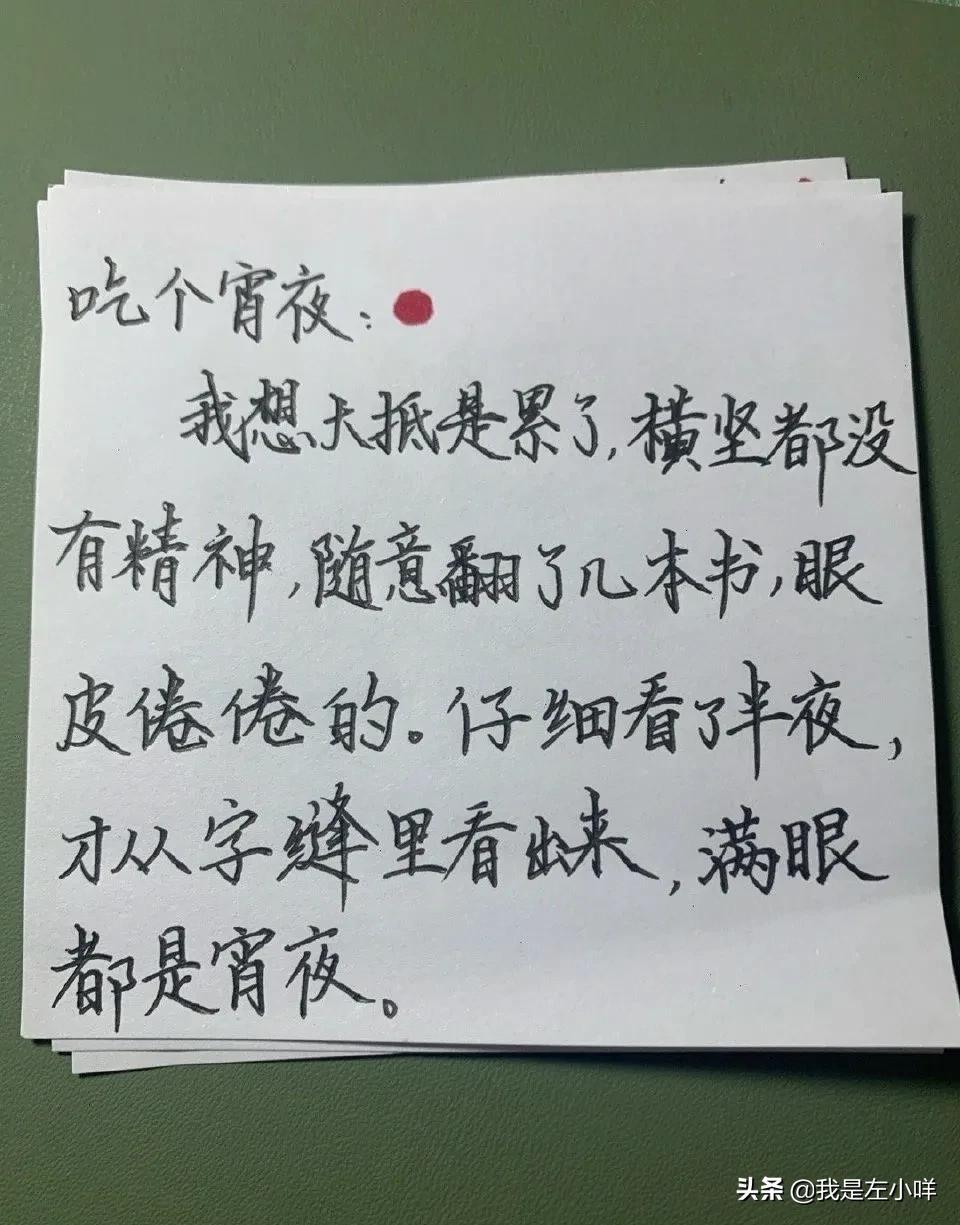 吃个宵夜:
我想大抵是累了,横竖都没
有精神,随意翻了几本书,眼
皮倦倦的。仔细看了半夜,
才从字缝里看出来,满眼
都是宵夜。
头条 @我是左小咩